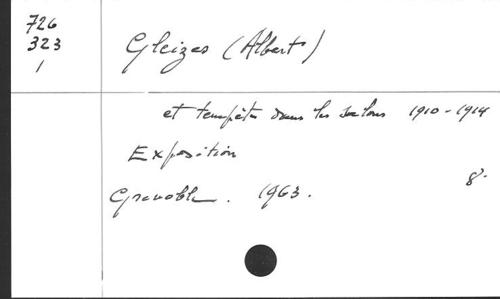 726
323
1
Gleizes (Albert)
et tempête dans les salons 1910-1914
Exposition
Grenoble. 1963.
8°